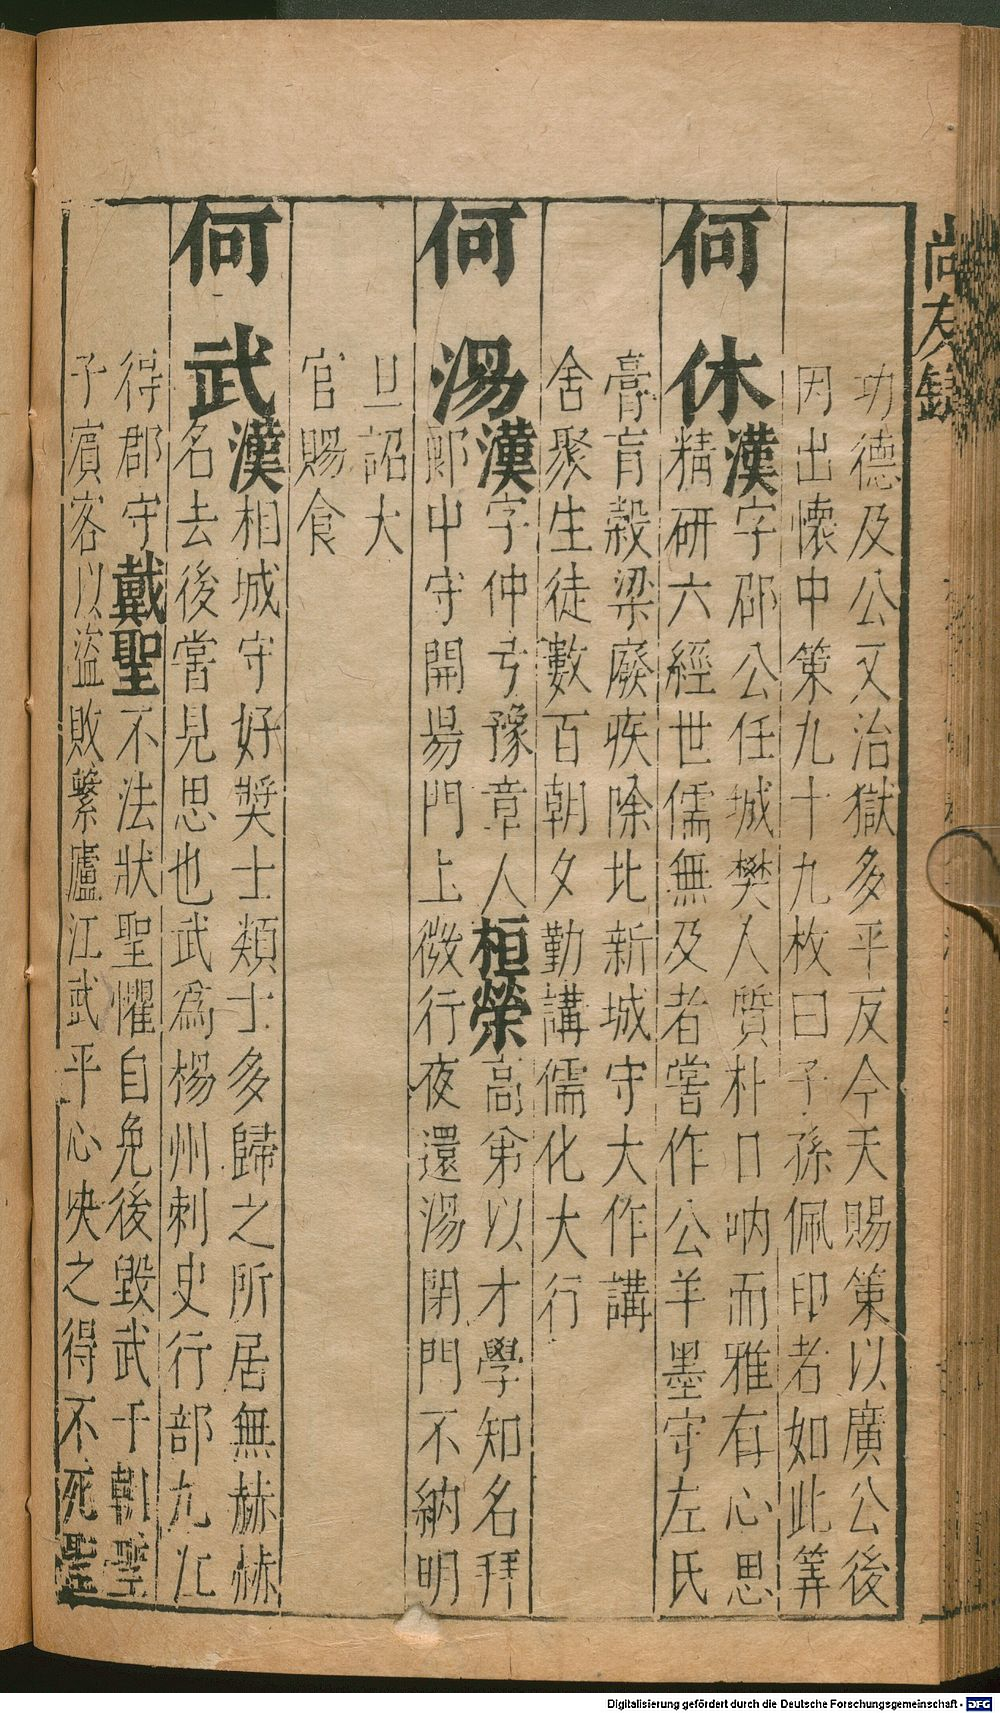 尚友錄
功德及公又治獄多平反今天賜策以廣公後
因出懷中策九十九枚曰子孫佩印者如此筭
何休
漢字邵公任城樊人質朴口吶而雅有心思
精研六經世儒無及者嘗作公羊墨守左氏
膏肓穀梁廢疾除北新城守大作講
舍聚生徒數百朝夕勤講儒化大行
何湯
漢字仲弓豫章人桓榮高弟以才學知名拜
郎中守開場門上微行夜還湯閉門不納明
旦詔大
官賜食
何武
漢相城守好奬士類士多歸之所居無赫赫
名去後嘗見思也武爲楊州刺史行部九江
得郡守戴聖不法狀聖懼自免後毀武于朝聖
子賓客以盜敗繫廬江武平心决之得不死聖
Digitalisierung gefördert durch die Deutsche Forschungsgemeinschaft - DFG